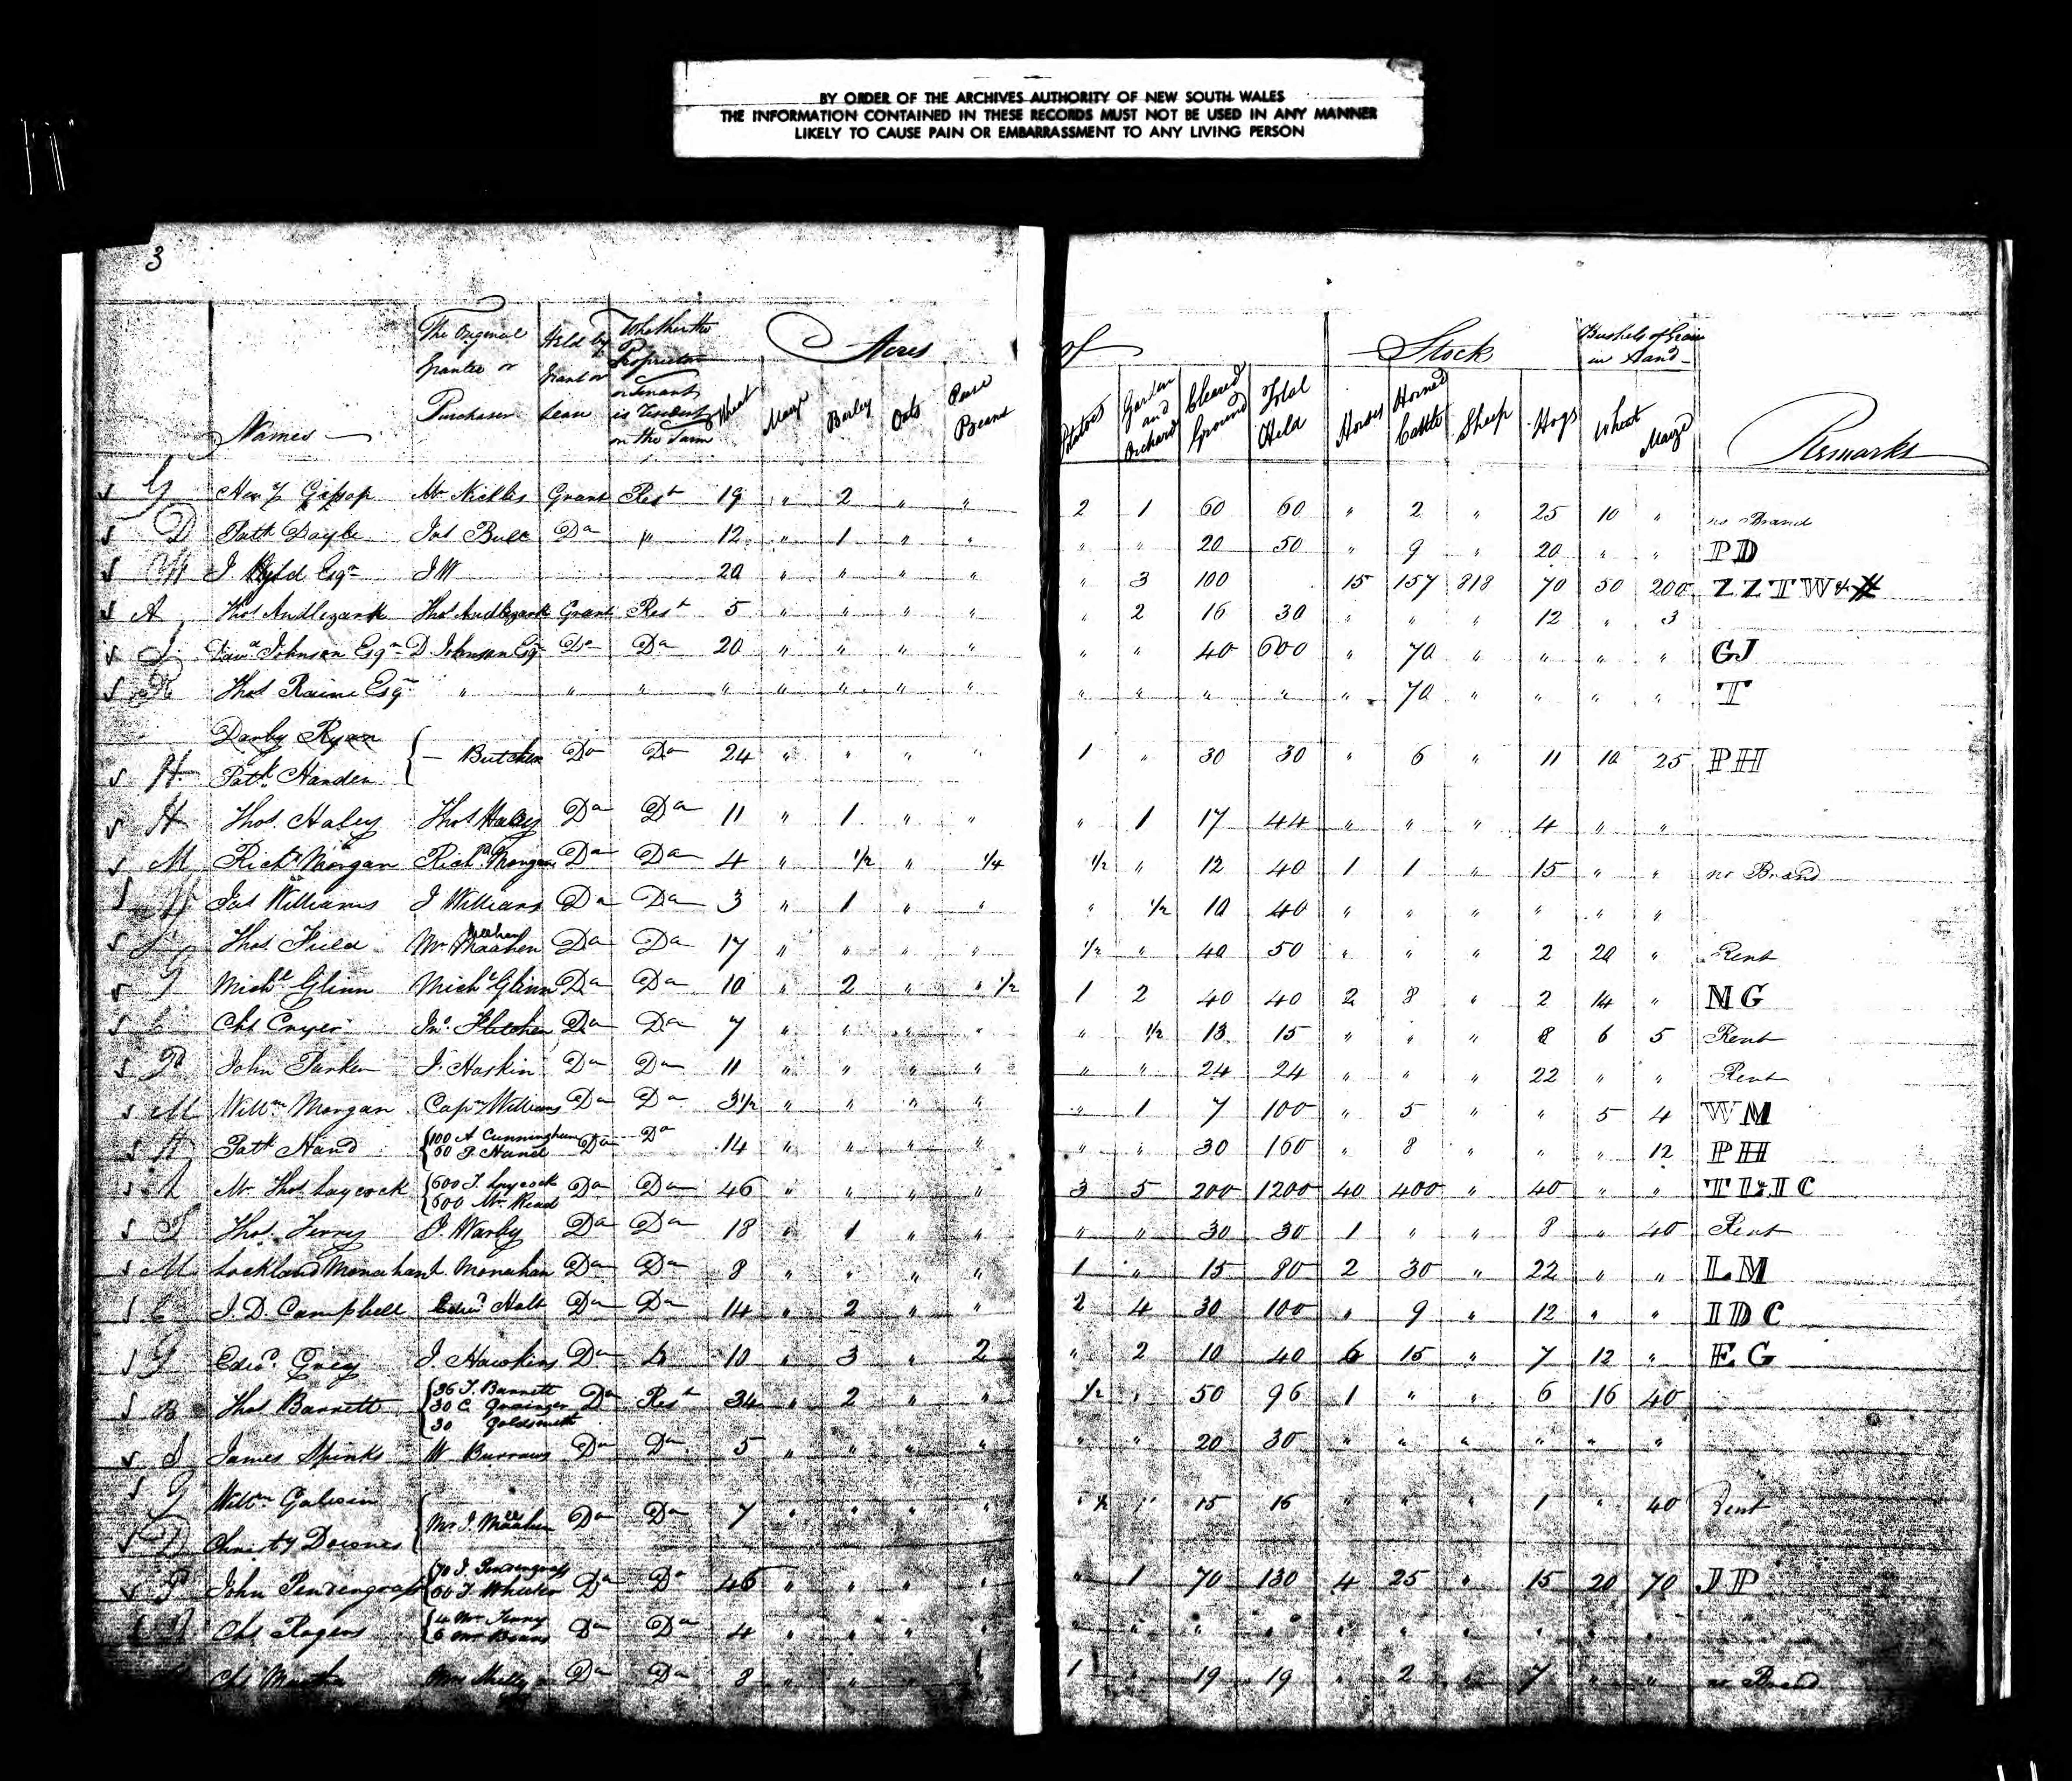 BY ORDER OF THE ARCHIVES AUTHORITY OF NEW SOUTH WALES
THE INFORMATION CONTAINED IN THESE RECORDS MUST NOT BE USED IN ANY MANNER
LIKELY TO CAUSE PAIN OR EMBARRASSMENT TO ANY LIVING PERSON
3
Names
The Original Grantee or Purchaser
Held by Grant or Lease
Whether the Proprietor or Tenant is Resident on the Farm
Acres of
Wheat Maize Barley Oats Pease Beans Potatoes Garden and Orchard Cleared Ground Total Held
Stock
Horses Horned Cattle Sheep Hogs
Bushels of Grain in Hand
Wheat Maize
Remarks
G Mr Nickles Grant Rest 19 " 2 " " 2 1 60 60 " 2 " 25 10 " no Brand
D Patk Doyle Jas Bull Do " 12 " 1 " " " " 20 50 " 9 " 20 " " PD
W J. Wyld Esqr J W 20 " " " " " 3 100 15 157 818 70 50 200 ZZTW &
A Thos Andlezark Thos Andlezark Grant Rest 5 " " " " " 2 16 30 " " " 12 " 3
J Johnson Esqr D. Johnson Esqr Do Do 20 " " " " " " 40 600 " 70 " " " " GJ
R Thos Raine Esqr " " " " " " " " " " " " " 70 " " " " T
Darby Ryan
H Patk Handen Butcher Do Do 24 " " " " 1 " 30 30 " 6 " 11 10 25 PH
H Thos. Haley Thos Haley Do Do 11 " 1 " " " 1 17 44 " " " 4 " "
M Richd Morgan Richd Morgan Do Do 4 " 1/2 " 1/4 1/2 " 12 40 1 1 " 15 " " no Brand
W Jas Williams J Williams Do Do 3 " 1 " " " 1/2 10 40 " " " " " "
F Thos Field Mr Meehan Do Do 17 " " " " 1/2 " 40 50 " " " 2 20 " Rent
G Michl Glinn Michl Glinn Do Do 10 " 2 " " 1/2 1 2 40 40 2 8 " 2 14 " MG
C Chs Cryer Jno Fletcher Do Do 7 " " " " " 1/2 13 15 " " " 8 6 5 Rent
P John Parker J. Haskin Do Do 11 " " " " " " 24 24 " " " 22 " " Rent
M Willm Morgan Capn Williams Do Do 3 1/2 " " " " " 1 7 100 " 5 " " 5 4 WM
H Patk Hand 100 A Cunningham Do Do 14 " " " " " " 30 160 " 8 " " " 12 PH
60 P. Hand
L Mr Thos Laycock 600 T. Laycock Do Do 46 " " " " 3 5 200 1200 40 400 " 40 " " TL IC
600 Mr Kead
T Thos Terry J. Warby Do Do 18 " 1 " " " " 30 30 1 " " 8 " 40 Rent
M Lockland Monahan L. Monahan Do Do 8 " " " " 1 " 15 80 2 30 " 22 " " LM
C J. D. Campbell Edwd Holt Do Do 14 " 2 " " 2 4 30 100 " 9 " 12 " " IDC
G Edwd Grey J. Hawkins Do 10 " 3 " 2 " 2 10 40 6 15 " 7 12 " EG
B Thos Barrett 36 T. Barrett Do Rest 34 " 2 " " 1/2 " 50 96 1 " " 6 16 40
30 C Grainger
30 Goldsmith
S James Spinks W Burrows Do Do 5 " " " " " " 20 30 " " " " " "
G Willm Galvin
D Christy Downes Mr J. Meehan Do Do 7 " " " " " 1/2 " 15 16 " " " 1 " 40 Rent
P John Pendengrass 70 J. Pendengrass Do Do 46 " " " " " 1 70 130 4 25 " 15 20 70 JP
60 T Wheeler
R Chs Rogers 4 Mr Terry Do Do 4 " " " " " " " " " " " " " "
6 Mr Beans
Chs Do Do 8 " " " " 1 " 19 19 " 2 " 7 " " no Brand